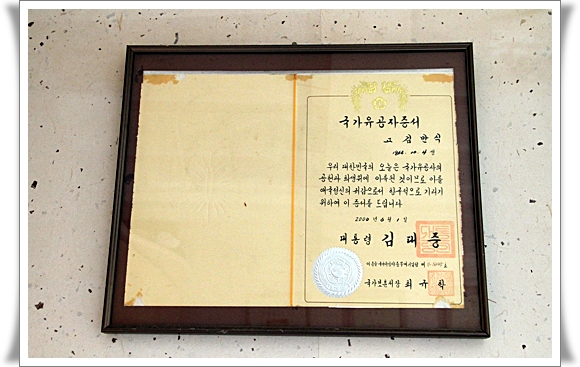 국가유공자증서
고 김만식
우리 대한민국의 오늘은 국가유공자의
공헌과 희생위에 이룩된 것이므로 이를
애국정신의 귀감으로서 항구적으로 기리기
위하여 이 증서를 드립니다
2000년 6월 1일
대통령 김대중
국가보훈처장 최규학